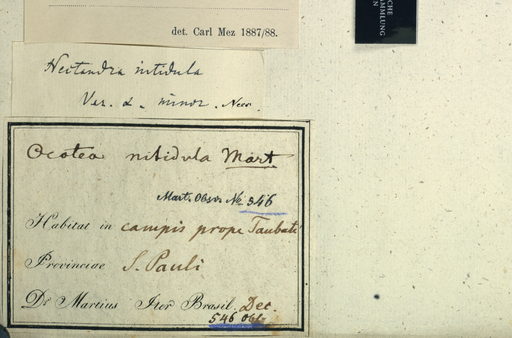 det. Carl Mez 1887/88.
CHE
AMMLUNG
EN
Nectandra nitidula
Var. α. minor. Nees.
Ocotea nitidula Mart
Mart. Obs. No. 546
Habitat in campis prope Taubaté
Provinciae S. Pauli
Dr Martius Iter Brasil. Dec.
546 Obs.